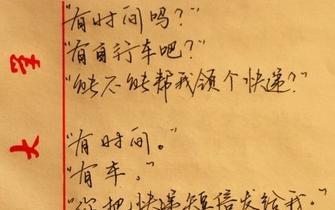 大学
"有时间吗？"
"有自行车吧？"
"能不能帮我领个快递？"
"有时间。"
"有车。"
"你把快递短信发给我。"